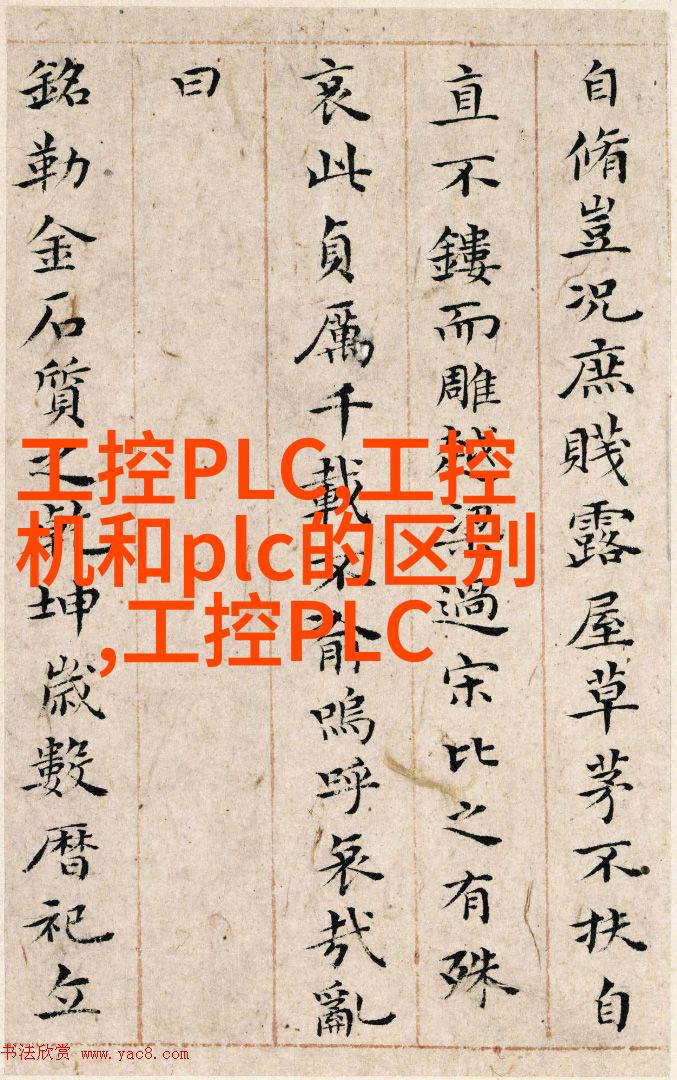 自脩豈況庶賤露屋草茅不扶自
直不鏤而雕越梁過宋比之有殊
哀此貞厲千載不渝嗚呼哀哉亂
曰
銘勒金石質之乾坤歲數暦祀立
工控PLC,工控
机和plc的区别
,工控PLC
书法欣赏 www.yac8.com